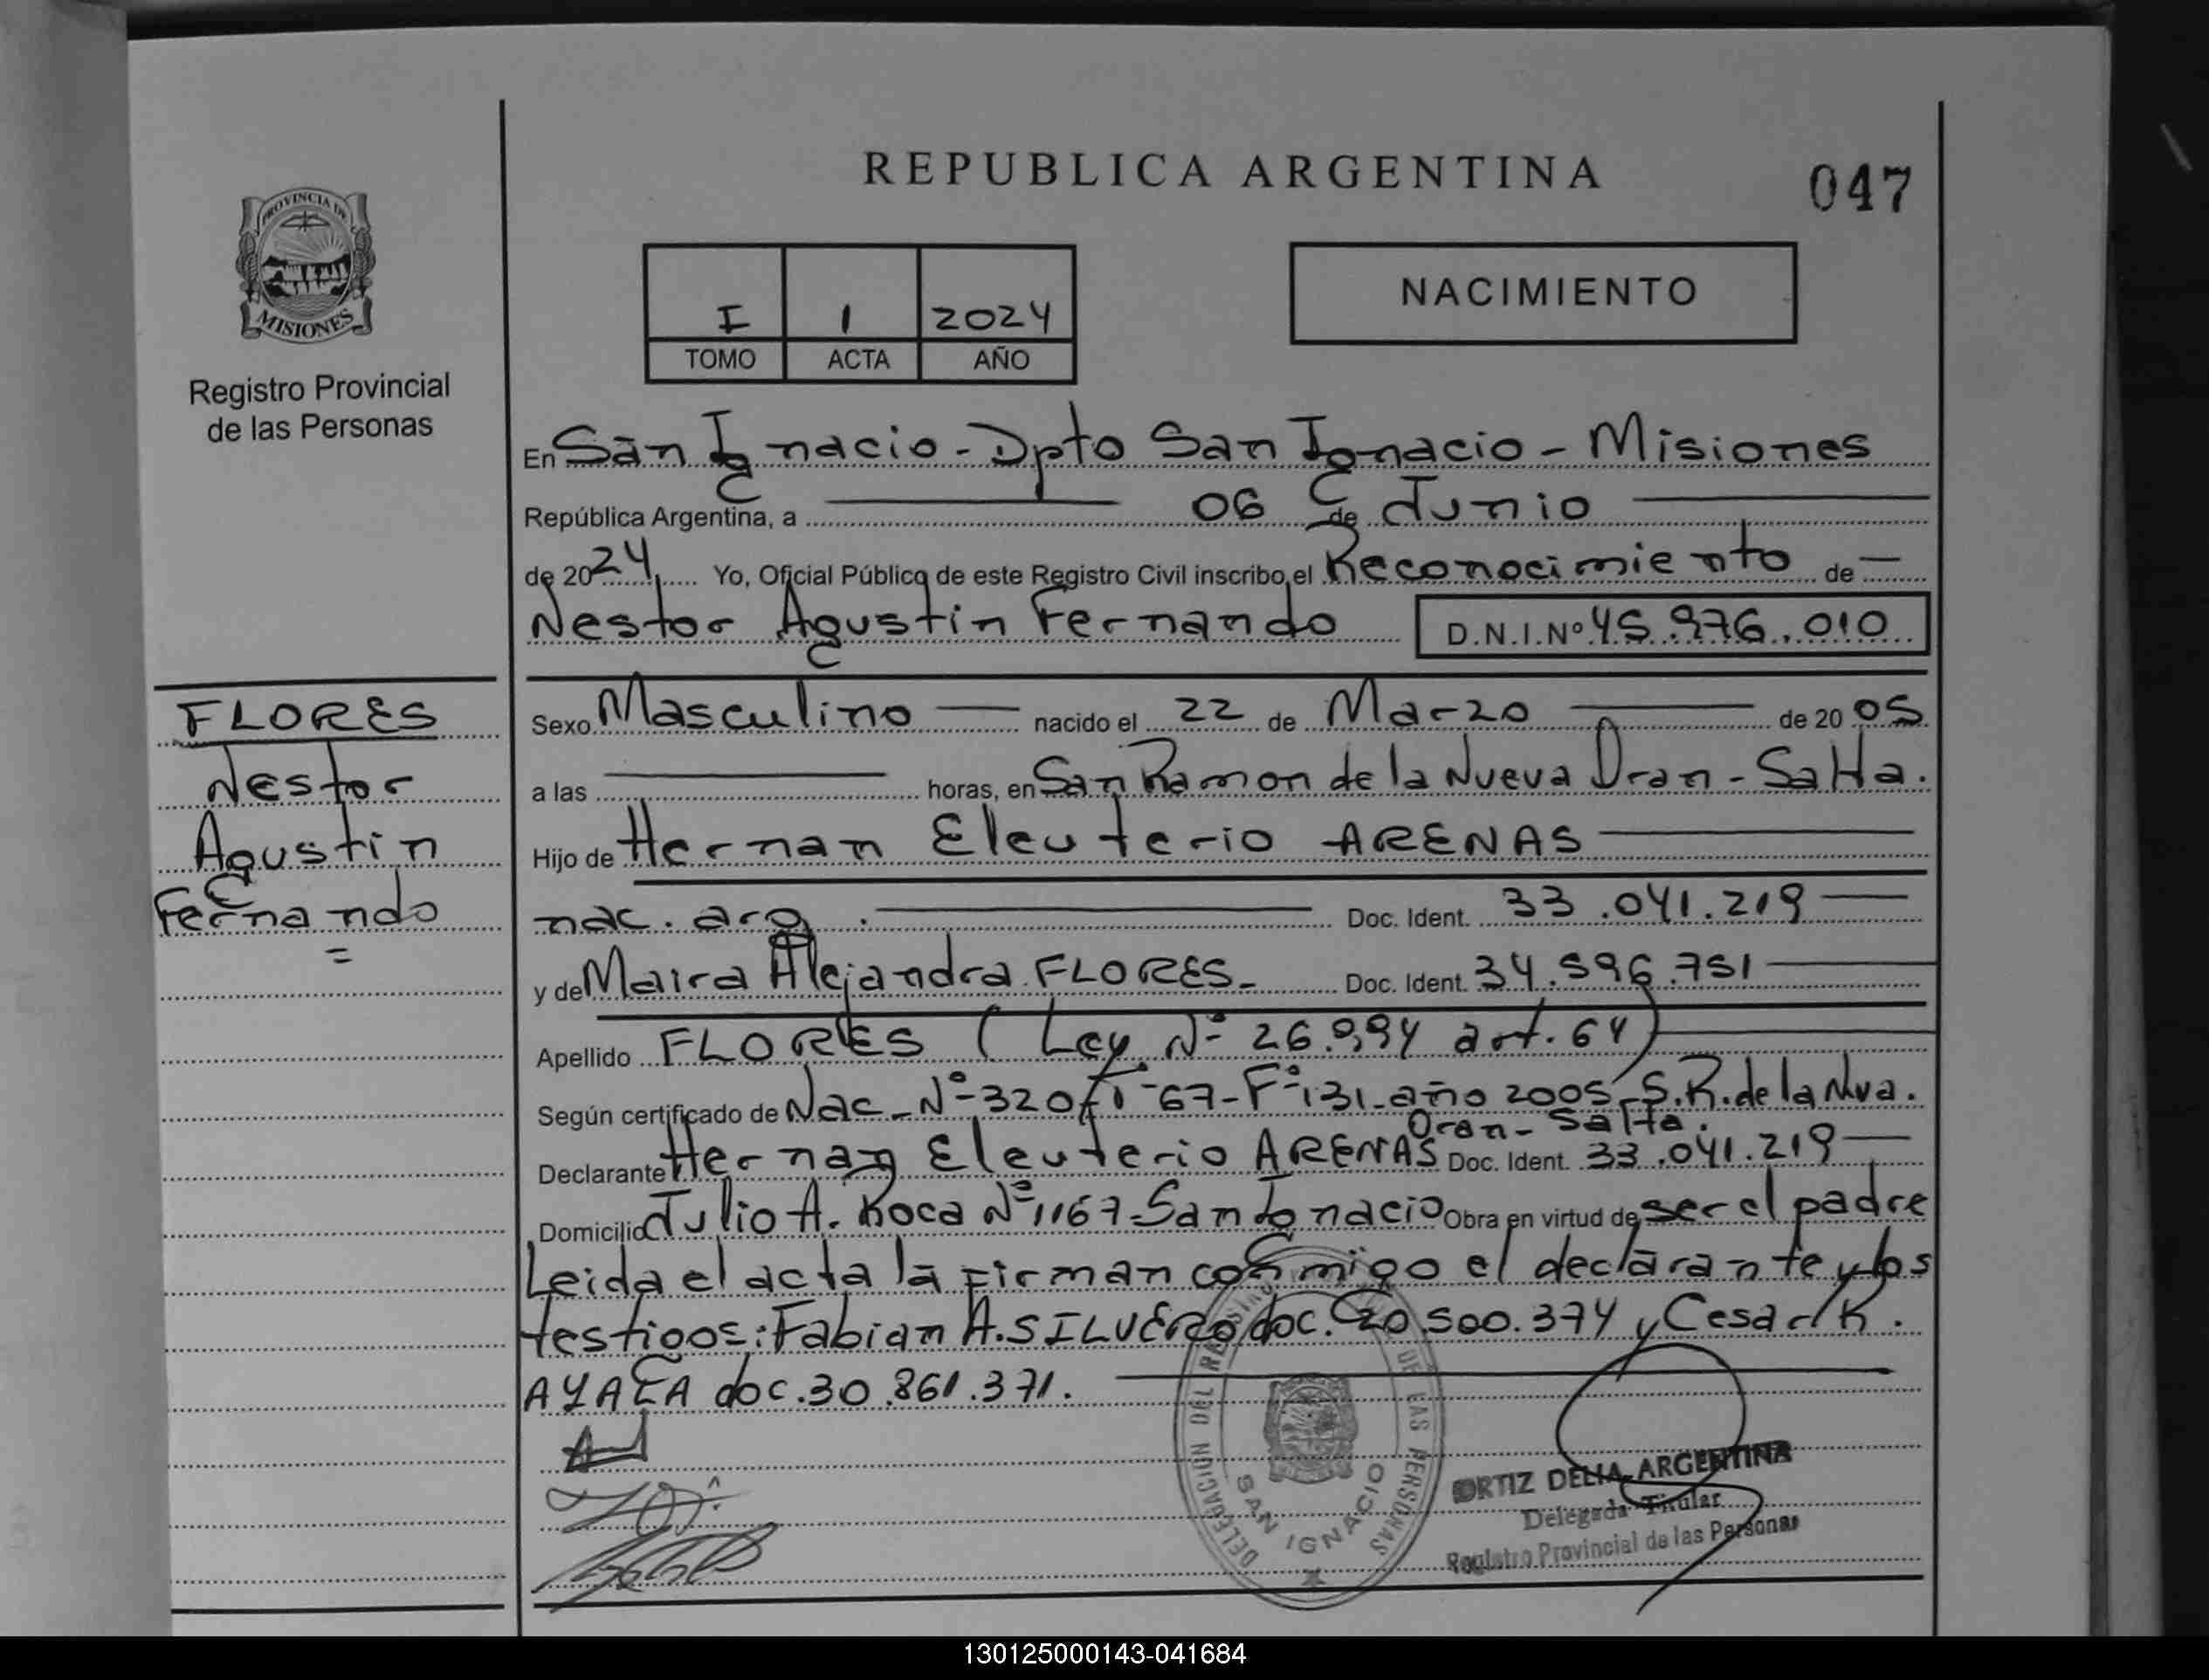 REPUBLICA ARGENTINA
047
PROVINCIA DE
MISIONES
Registro Provincial
de las Personas
I 1 2024
TOMO ACTA AÑO
NACIMIENTO
En San Ignacio - Dpto San Ignacio - Misiones
República Argentina, a 06 de Junio
de 2024 Yo, Oficial Público de este Registro Civil inscribo el Reconocimiento de
Nestor Agustin Fernando D.N.I.Nº 45.976.010
FLORES
Nestor
Agustin
Fernando
=
Sexo Masculino nacido el 22 de Marzo de 20 05
a las horas, en San Ramon de la Nueva Oran - Salta.
Hijo de Hernan Eleuterio ARENAS
nac. arg. Doc. Ident. 33.041.219
y de Maira Alejandra FLORES - Doc. Ident. 34.596.751
Apellido FLORES ( Ley Nº 26.994 art. 64)
Según certificado de Nac - Nº 320 - Tº 67 - Fº 131 - año 2005 - S.R. de la Nva.
Oran - Salta.
Declarante Hernan Eleuterio ARENAS Doc. Ident. 33.041.219
Domicilio Julio A. Roca Nº 1167 - San Ignacio Obra en virtud de ser el padre
Leida el acta la firman conmigo el declarante y los
testigos: Fabian A. SILVERO doc. 20.500.374 y Cesar R.
AYALA doc. 30.861.371.
DELEGACION DEL REGISTRO DE LAS PERSONAS
SAN IGNACIO
ORTIZ DELIA ARGENTINA
Delegada Titular
Registro Provincial de las Personas
130125000143-041684